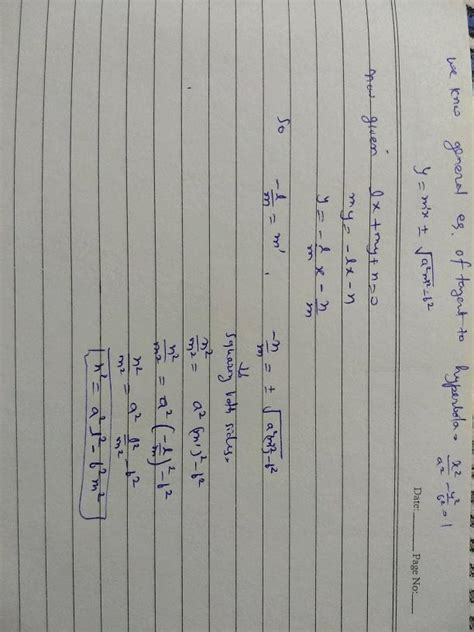 Date:______ Page No:______
we know general eq. of tangent to hyperbola = x²/a² - y²/b² = 1
y = m'x ± √a²m'² - b²
now given lx + my + n = 0
my = -lx - n
y = -l/m x - n/m
So -l/m = m' , -n/m = ± √a²(m')² - b²
Squaring both sides
n²/m² = a²(m')² - b²
n²/m² = a²(-l/m)² - b²
n²/m² = a² l²/m² - b²
n² = a²l² - b²m²